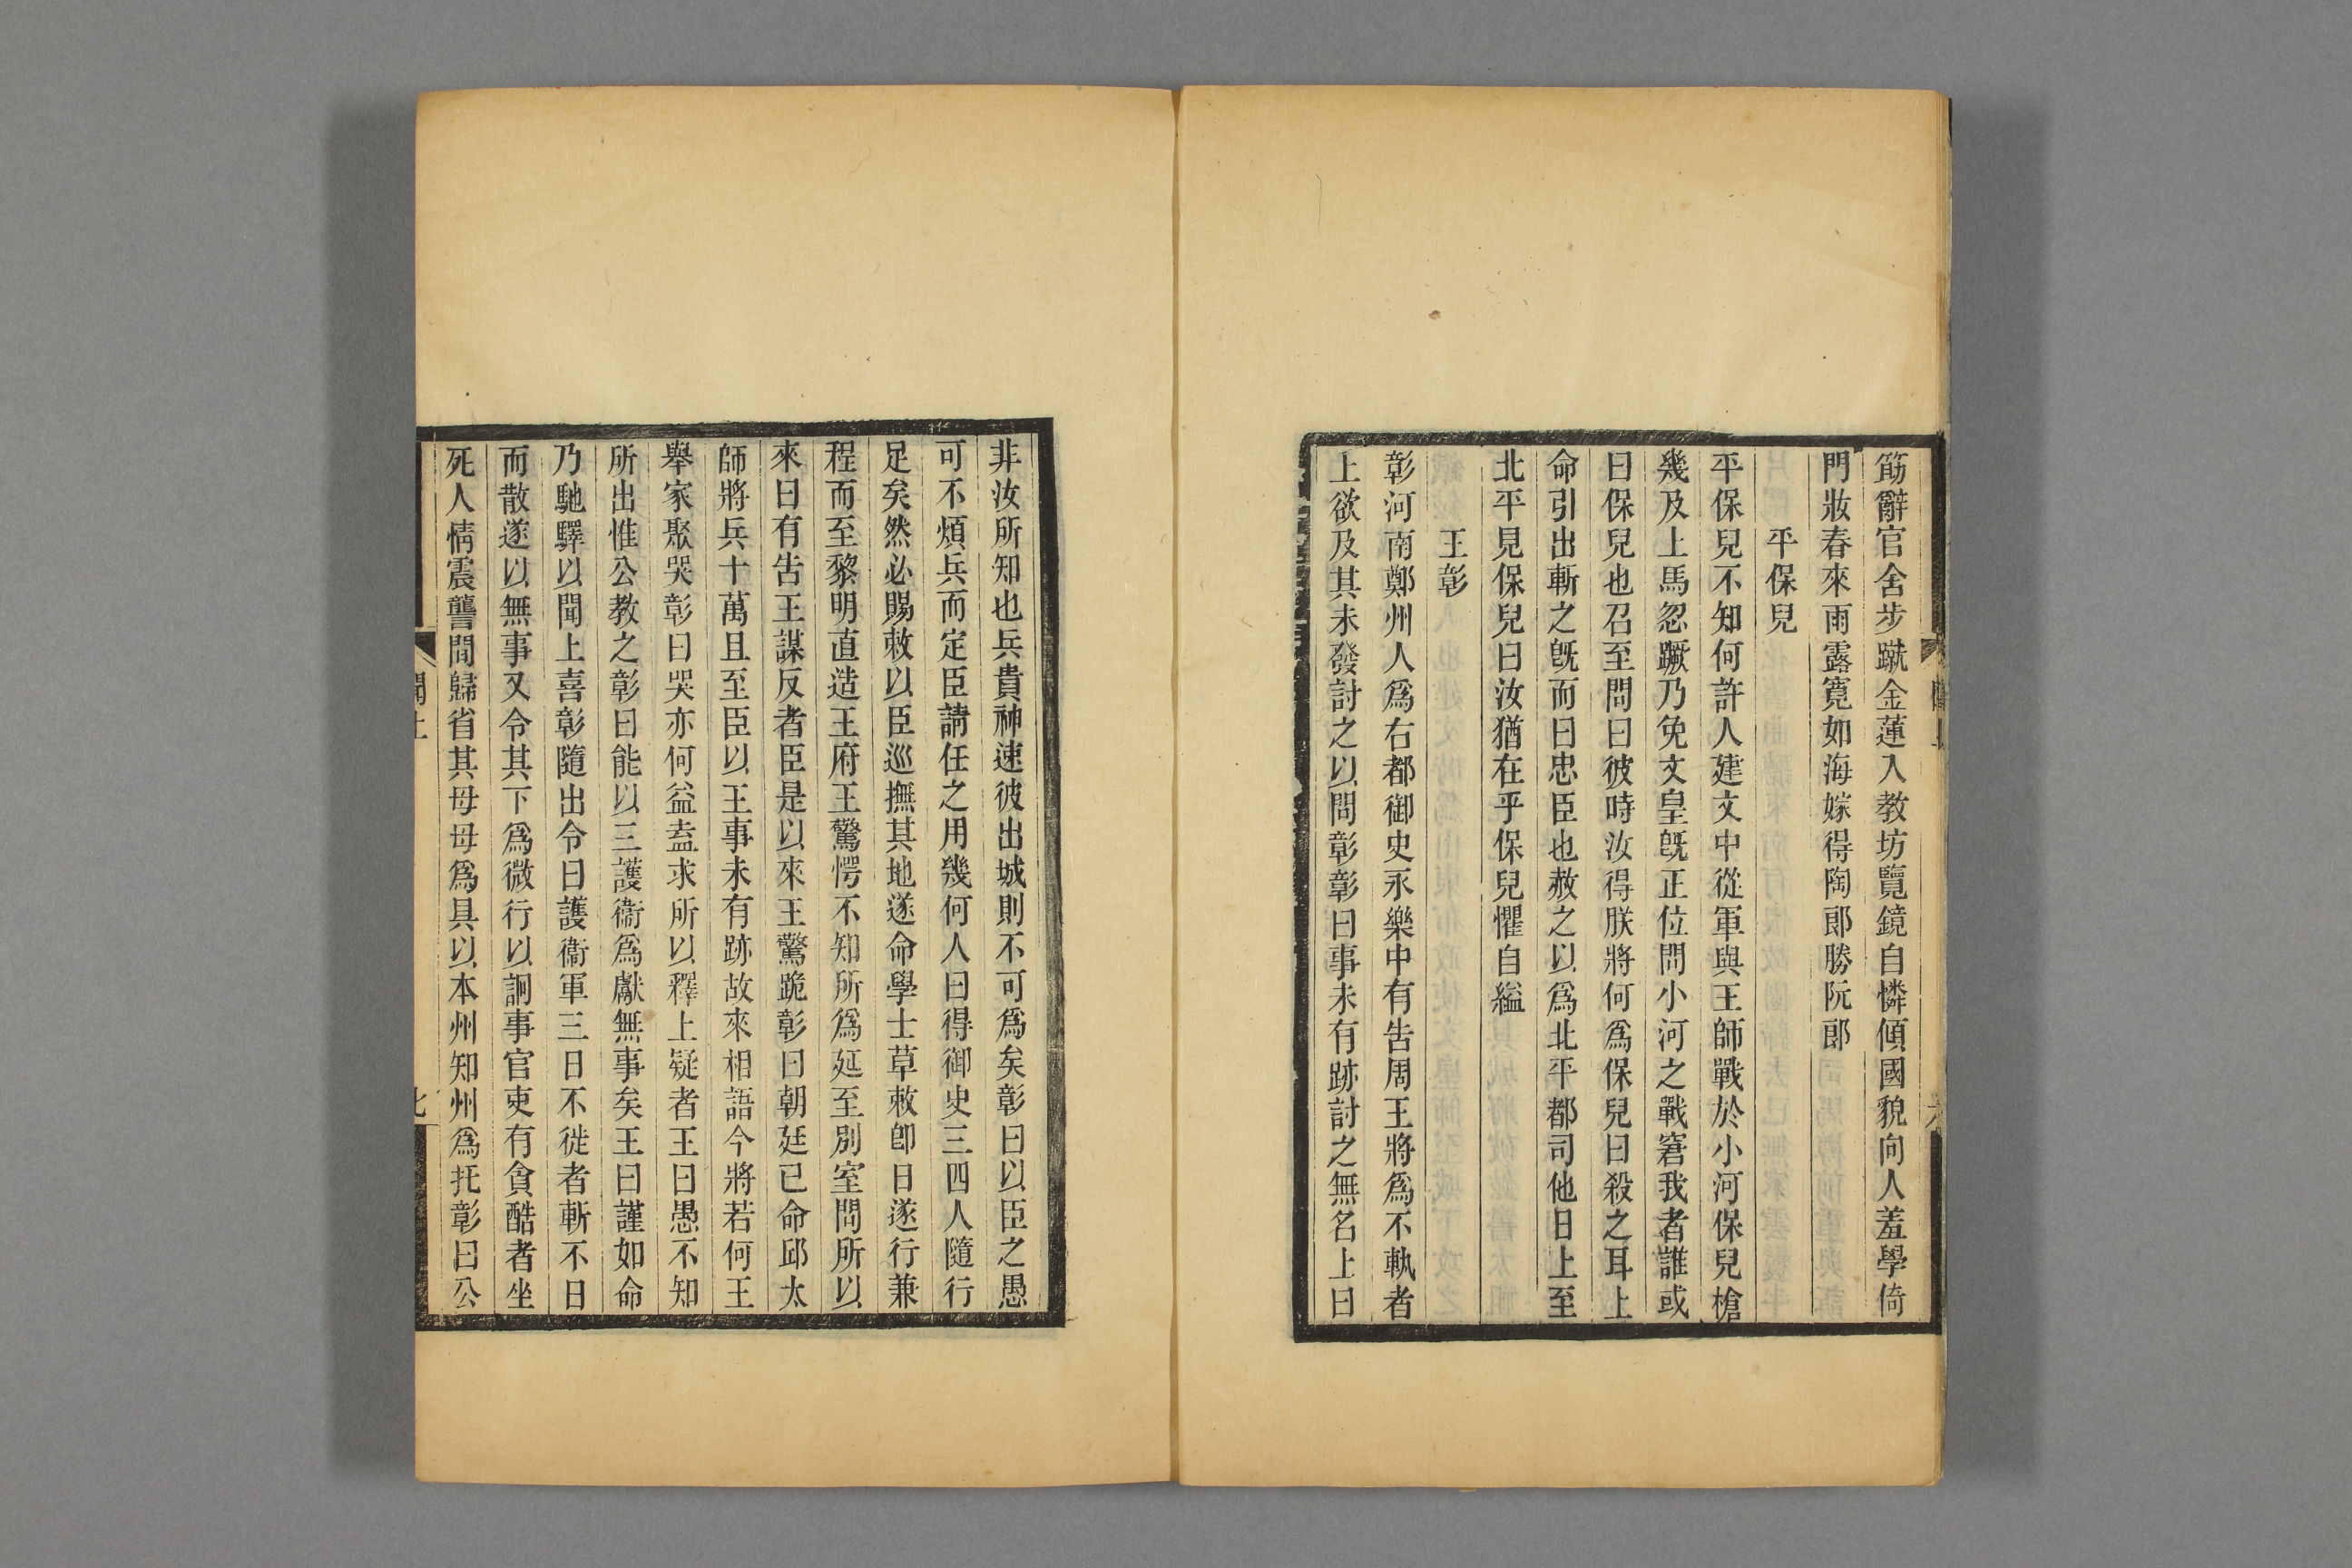 筯辭官舍步蹴金蓮入教坊覽鏡自憐傾國貌向人羞學倚
門妝春來雨露寛如海嫁得陶郎勝阮郎
平保兒
平保兒不知何許人建文中從軍與王師戰於小河保兒槍
幾及上馬忽蹶乃免文皇旣正位問小河之戰窘我者誰或
曰保兒也召至問曰彼時汝得朕將何爲保兒曰殺之耳上
命引出斬之旣而曰忠臣也赦之以爲北平都司他日上至
北平見保兒曰汝猶在乎保兒懼自縊
王彰
彰河南鄭州人爲右都御史永樂中有告周王將爲不軌者
上欲及其未發討之以問彰彰曰事未有跡討之無名上曰
非汝所知也兵貴神速彼出城則不可爲矣彰曰以臣之愚
可不煩兵而定臣請任之用幾何人曰得御史三四人隨行
足矣然必賜敕以臣巡撫其地遂命學士草敕卽日遂行兼
程而至黎明直造王府王驚愕不知所爲延至別室問所以
來曰有告王謀反者臣是以來王驚跪彰曰朝廷已命邱太
師將兵十萬且至臣以王事未有跡故來相語今將若何王
舉家聚哭彰曰哭亦何益盍求所以釋上疑者王曰愚不知
所出惟公教之彰曰能以三護衞爲獻無事矣王曰謹如命
乃馳驛以聞上喜彰隨出令曰護衞軍三日不徙者斬不日
而散遂以無事又令其下爲微行以詗事官吏有貪酷者坐
死人情震讋間歸省其母母爲具以本州知州爲托彰曰公